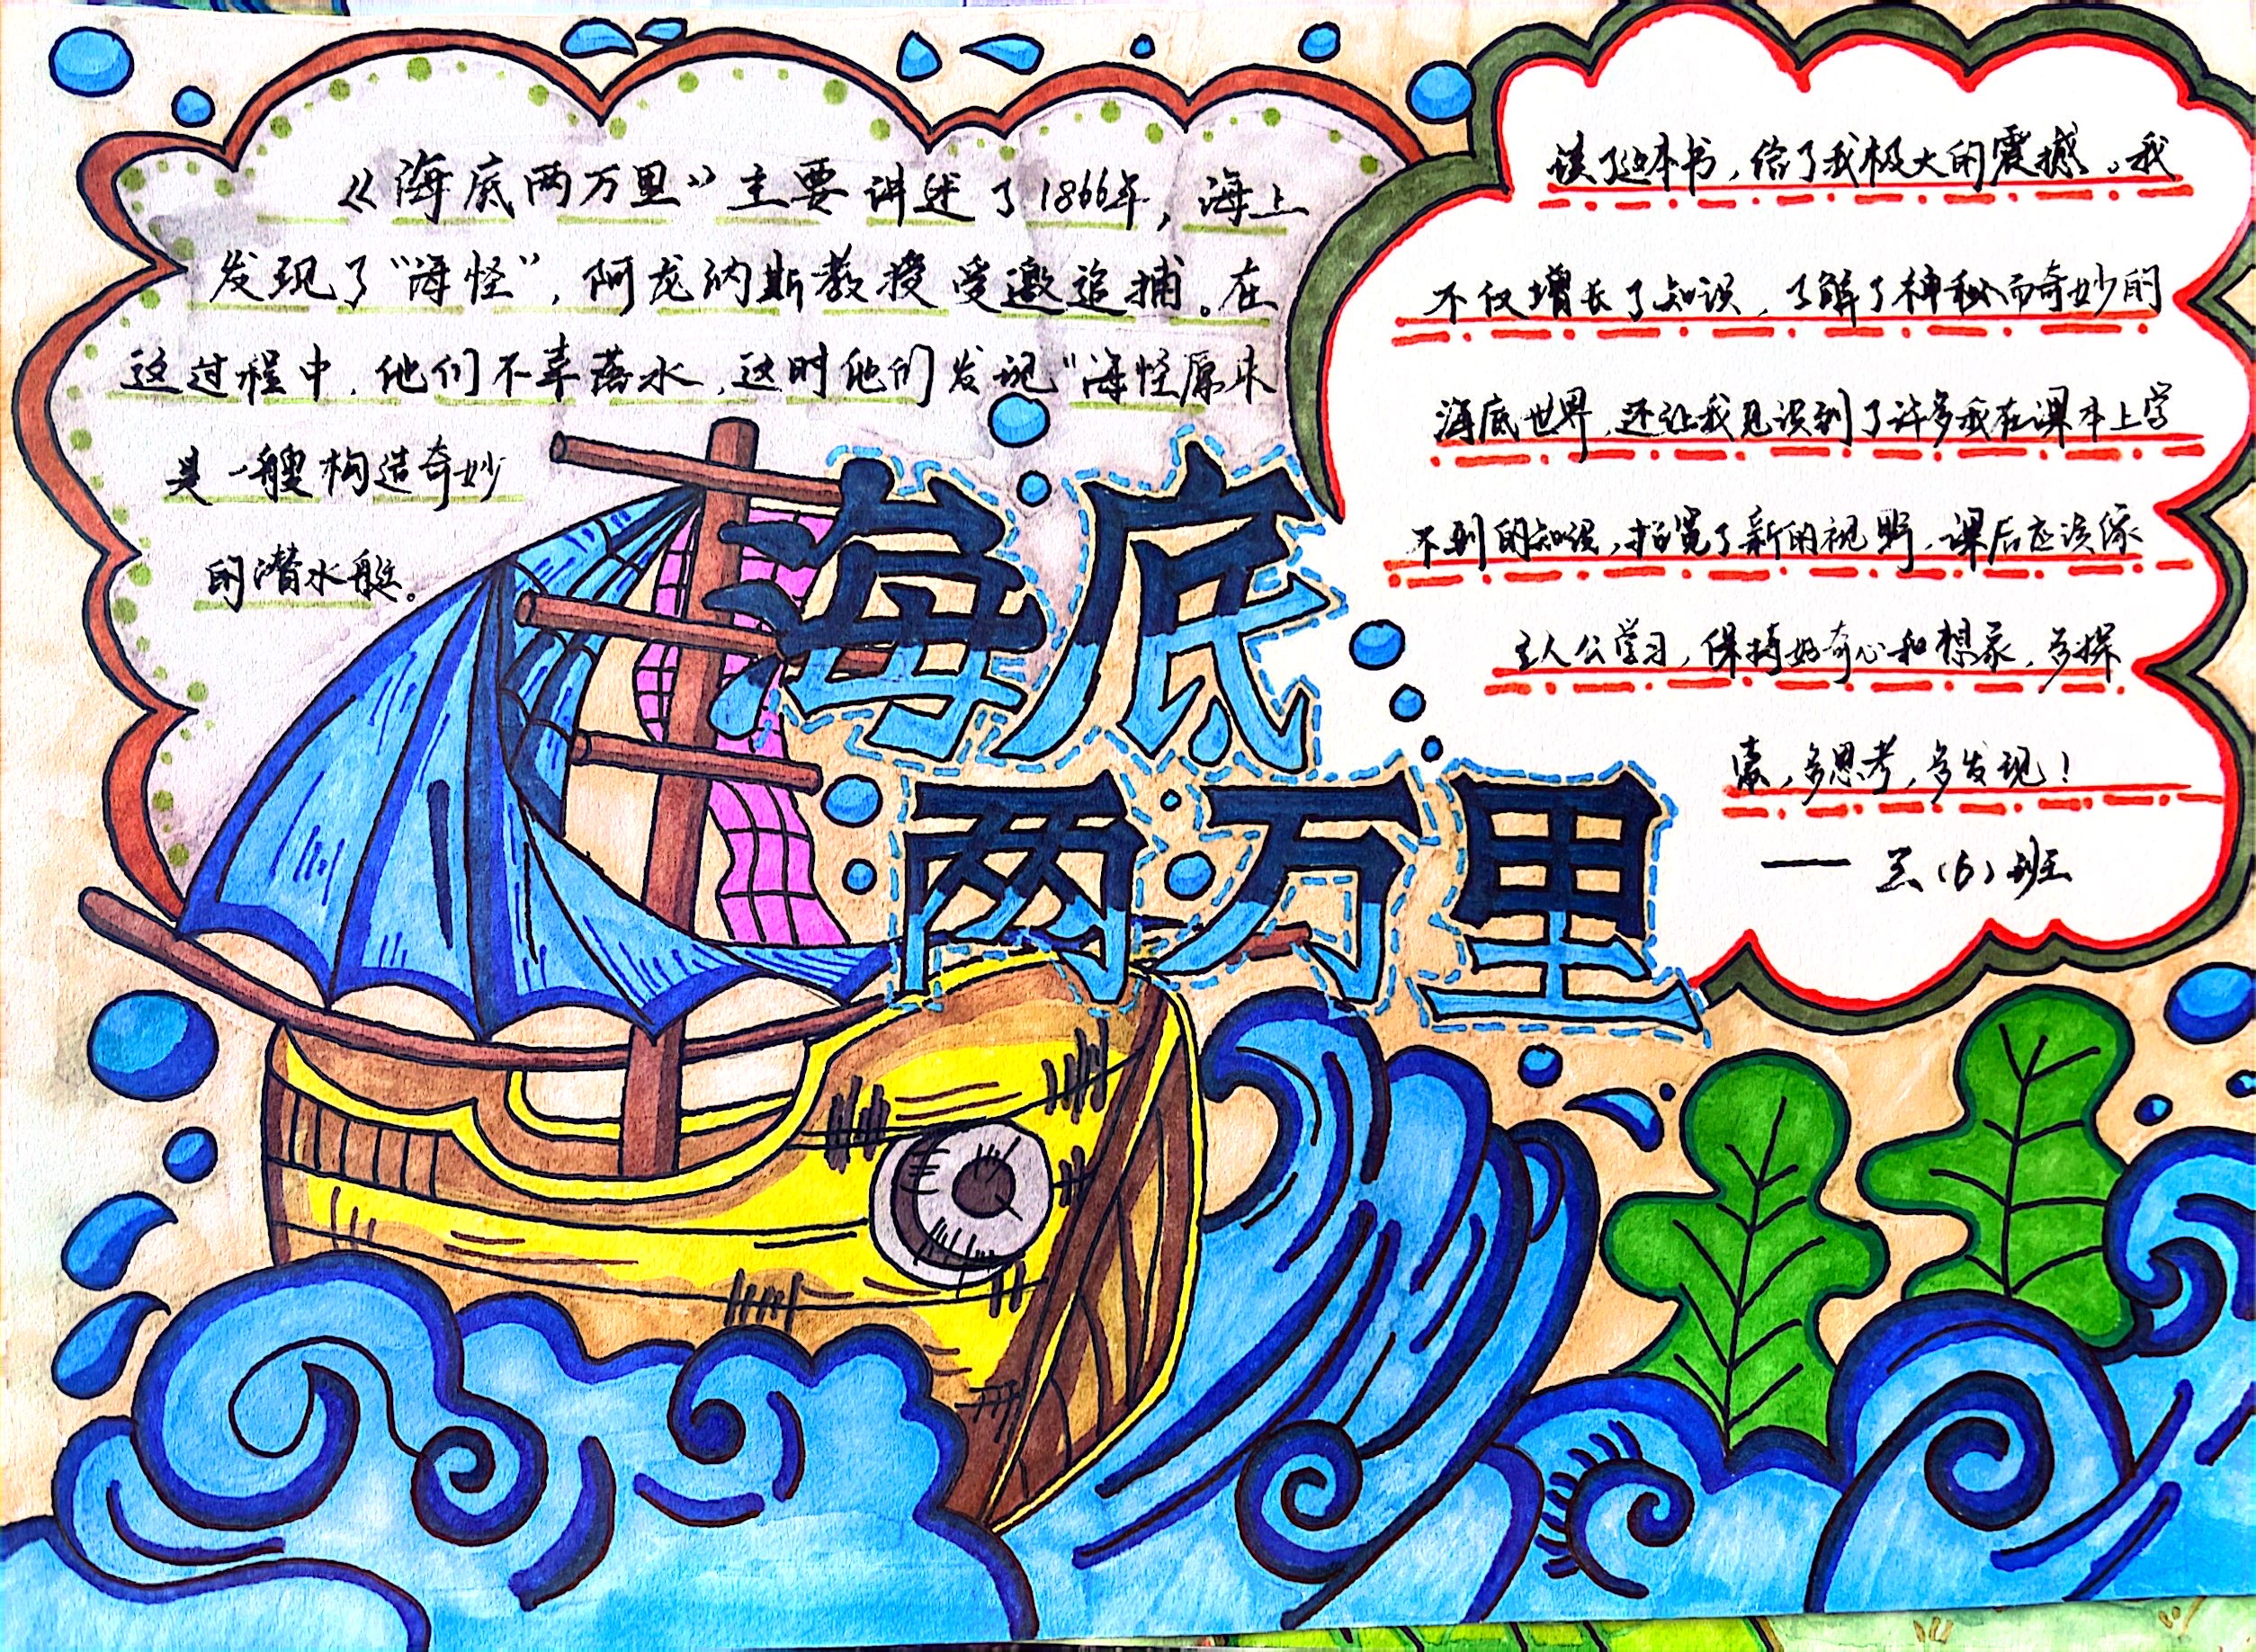 《海底两万里》主要讲述了1866年，海上
发现了“海怪”，阿龙纳斯教授受邀追捕。在
这过程中，他们不幸落水，这时他们发现“海怪原来
是一艘构造奇妙
的潜水艇。
海底
两万里
读了这本书，给了我极大的震撼。我
不仅增长了知识，了解了神秘而奇妙的
海底世界，还让我见识到了许多我在课本上学
不到的知识，拓宽了新的视野，课后应该像
主人公学习，保持好奇心和想象，多探
索，多思考，多发现！
—— 三（6）班